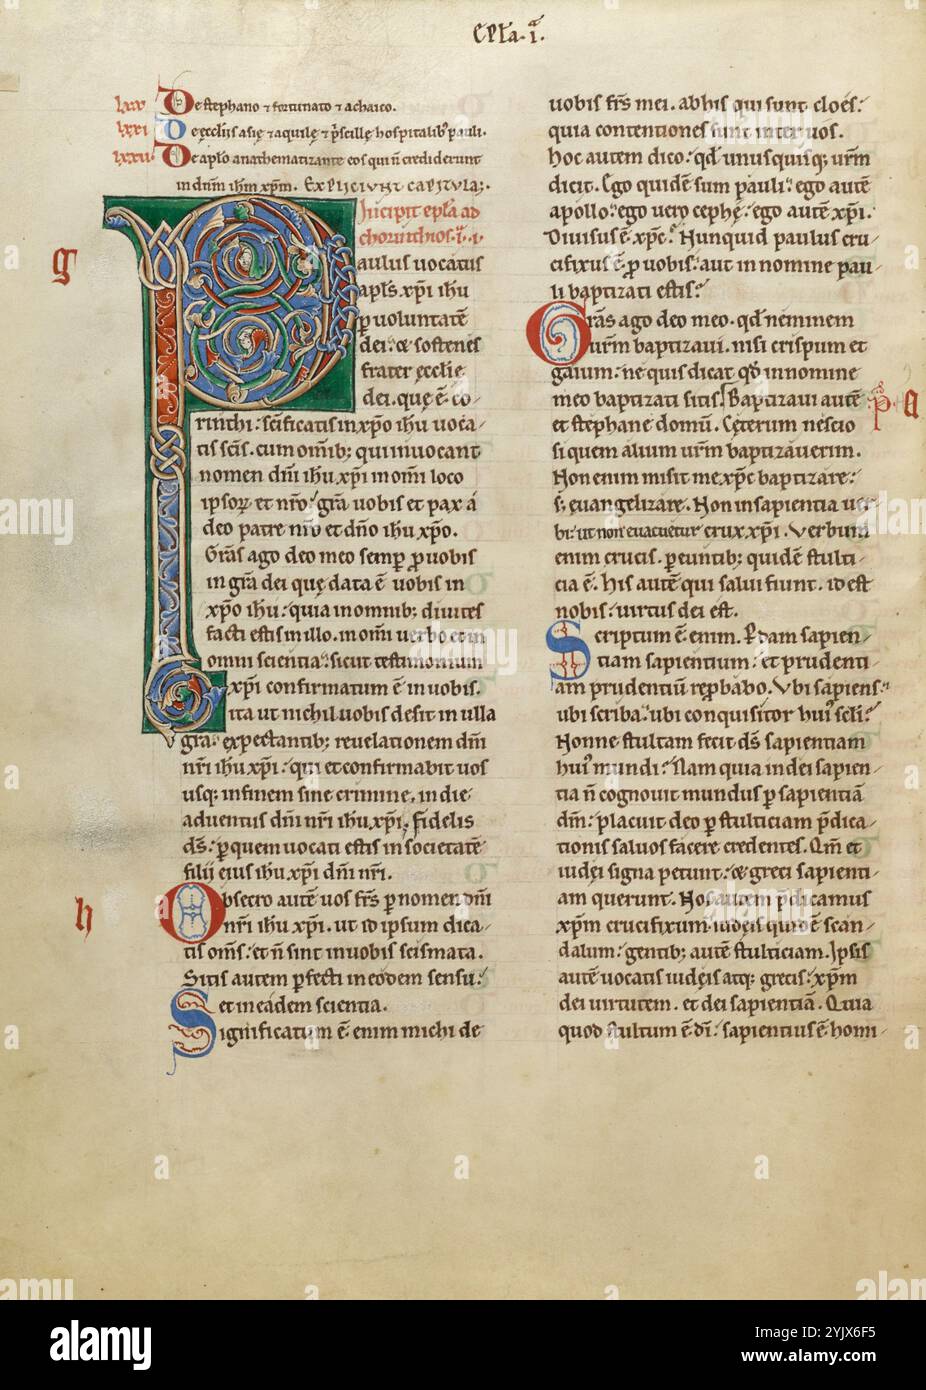 Epła. iª.
lxx. De stephano ⁊ fortunato ⁊ achaico.
lxxi De ęccliis asię ⁊ aquilę ⁊ p̃scillę hospitalib; pauli.
lxxii. De apło anathematizante eos qui ñ crediderunt
in dñm ihm xp̄m. Expliciunt capitula;.
Incipit epła ad
chorinthios. i. i.
g
Paulus uocatus
apłs xp̄i ihu
p uoluntatē
dei: & sostenes
frater ęcclie
dei. quę ē co-
rinthi: scīficatis in xp̄o ihu uoca-
tis scīs. cum om̄ib; qui inuocant
nomen dm̄i ihu xp̄i in om̄i loco
ipsoꝝ et nr̄o: gr̄a uobis et pax a
deo patre nr̄o et dño ihu xp̄o.
Gr̄as ago deo meo semp p uobis
in gr̄a dei quę data ē uobis in
xp̄o ihu: quia in omnib; diuites
facti estis in illo. in om̄i uerbo et in
omni scientia: sicut testimonium
xp̄i confirmatum ē in uobis.
ita ut nichil uobis desit in ulla
gr̄a: expectantib; reuelationem dm̄i
nr̄i ihu xp̄i: qui et confirmabit uos
usq; in finem sine crimine. in die
aduentus dm̄i nr̄i ihu xp̄i. Fidelis
ds: p quem uocati estis in societatē
filii eius ihu xp̄i dm̄i nr̄i.
h
Obsecro autē uos frs p nomen dm̄i
nr̄i ihu xp̄i. ut id ipsum dica-
tis om̄s: et ñ sint in uobis scismata.
Sitis autem pfecti in eodem sensu:
et in eadem scientia.
Significatum ē enim michi de
uobis frs mei. ab his qui sunt cloes:
quia contentiones sunt inter uos.
Hoc autem dico: qd unusquisq; ur̄m
dicit. Ego quidē sum pauli: ego autē
apollo: ego uero cephę: ego autē xp̄i.
Diuisus ē xp̄c: Nunquid paulus cru-
cifixus ē p uobis: aut in nomine pau-
li baptizati estis:
Gr̄as ago deo meo. qd neminem
ur̄m baptizaui. nisi crispum et
gaium: ne quis dicat qd in nomine
meo baptizati sitis. Baptizaui autē
p. a
et stephane domū. Cęterum nescio
si quem alium ur̄m baptizauerim.
Non enim misit me xp̄c baptizare:
s; euangelizare. Non in sapientia uer-
bi: ut non euacuetur crux xp̄i. Verbum
enim crucis. peuntib; quidē stulti-
cia ē. His autē qui salui fiunt. id est
nobis: uirtus dei est.
Scriptum ē enim. Pdam sapien-
tiam sapientium: et prudenti-
am prudentiū rep̱babo. Vbi sapiens:
ubi scriba: ubi conquisitor hui' scli:
Nonne stultam fecit ds sapientiam
hui' mundi: Nam quia in dei sapien-
tia ñ cognouit mundus p sapientiā
dm̄: placuit deo p stulticiam p̄dica-
tionis saluos facere credentes. Qm̄ et
iudei signa petunt: & greci sapienti-
am querunt. Nos autem p̄dicamus
xp̄m crucifixum. iudeis quidē scan-
dalum. gentib; autē stulticiam. Ipsis
autē uocatis iudeis atq; grecis: xp̄m
dei uirtutem. et dei sapientiā. Quia
quod stultum ē di: sapientius ē homi-
alamy
Image ID: 2YJX6F5
www.alamy.com